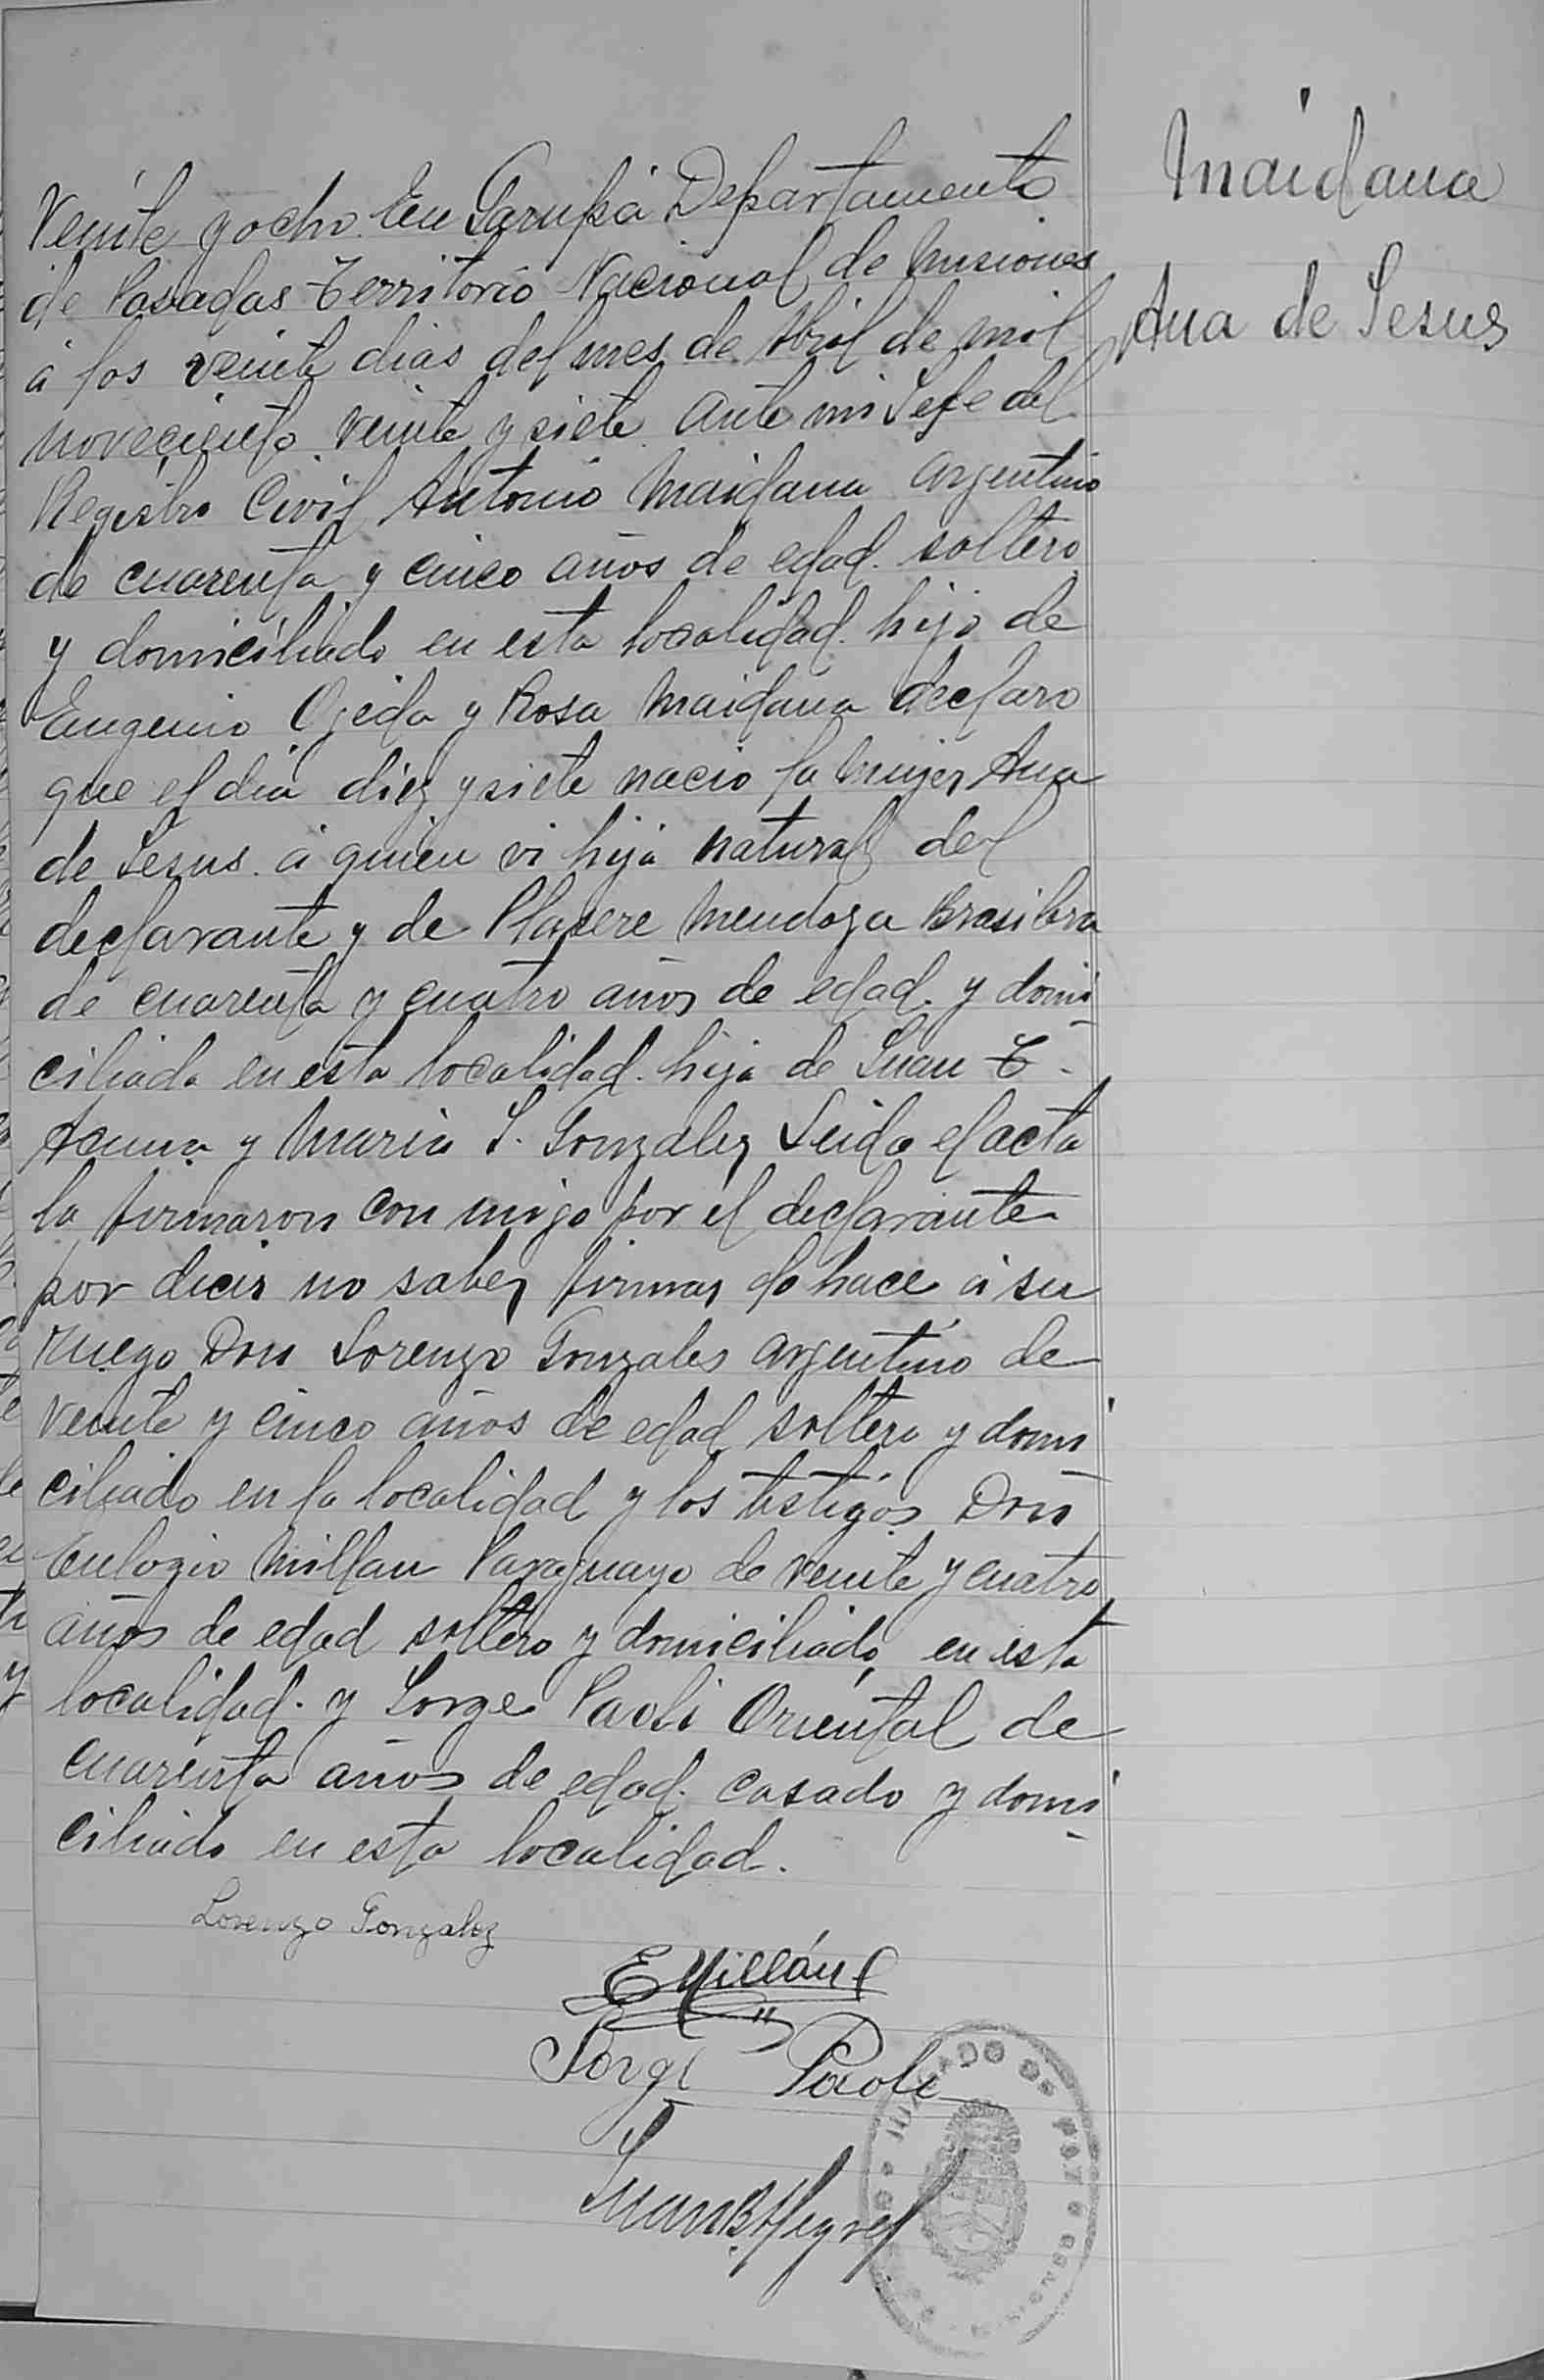 Maidana
Ana de Jesus
Veinte y ocho. En Garupá Departamento
de Posadas Territorio Nacional de Misiones
á los veinte dias del mes de Abril de mil
noveciento veinte y siete ante mi Jefe del
Registro Civil Antonio Maidana argentino
de cuarenta y cinco años de edad. soltero
y domiciliado en esta localidad. hijo de
Eugenio Ojeda y Rosa Maidana declaro
que el dia diez y siete nacio la mujer Ana
de Jesus. á quien vi hija natural del
declarante y de Placere Mendoza Brasilera
de cuarenta y cuatro años de edad. y domi
ciliada en esta localidad. hija de Juan T.
Acuna y Maria J. Gonzalez Leida el acta
la firmaron con migo por el declarante
por decir no saber firmar lo hace á su
ruego Don Lorenzo Gonzales argentino de
veinte y cinco años de edad soltero y domi
ciliado en la localidad y los testigos Don
Eulogio Millan Paraguayo de veinte y cuatro
años de edad soltero y domiciliado en esta
localidad. y Jorge Paoli Oriental de
cuarenta años de edad. casado y domi
ciliado en esta localidad.
Lorenzo Gonzalez
E Millán
Jorge Paoli
Juan B
JUZGADO DE PAZ